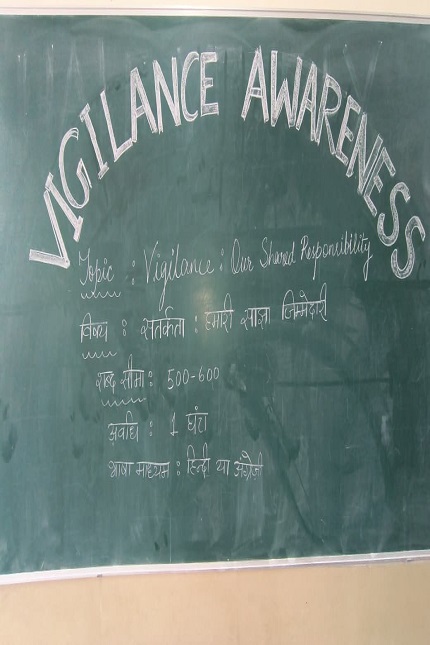 VIGILANCE AWARENESS
Topic : Vigilance : Our Shared Responsibility
विषय : सतर्कता : हमारी साझा जिम्मेदारी
शब्द सीमा : 500-600
अवधि : 1 घंटा
भाषा माध्यम : हिन्दी या अंग्रेजी